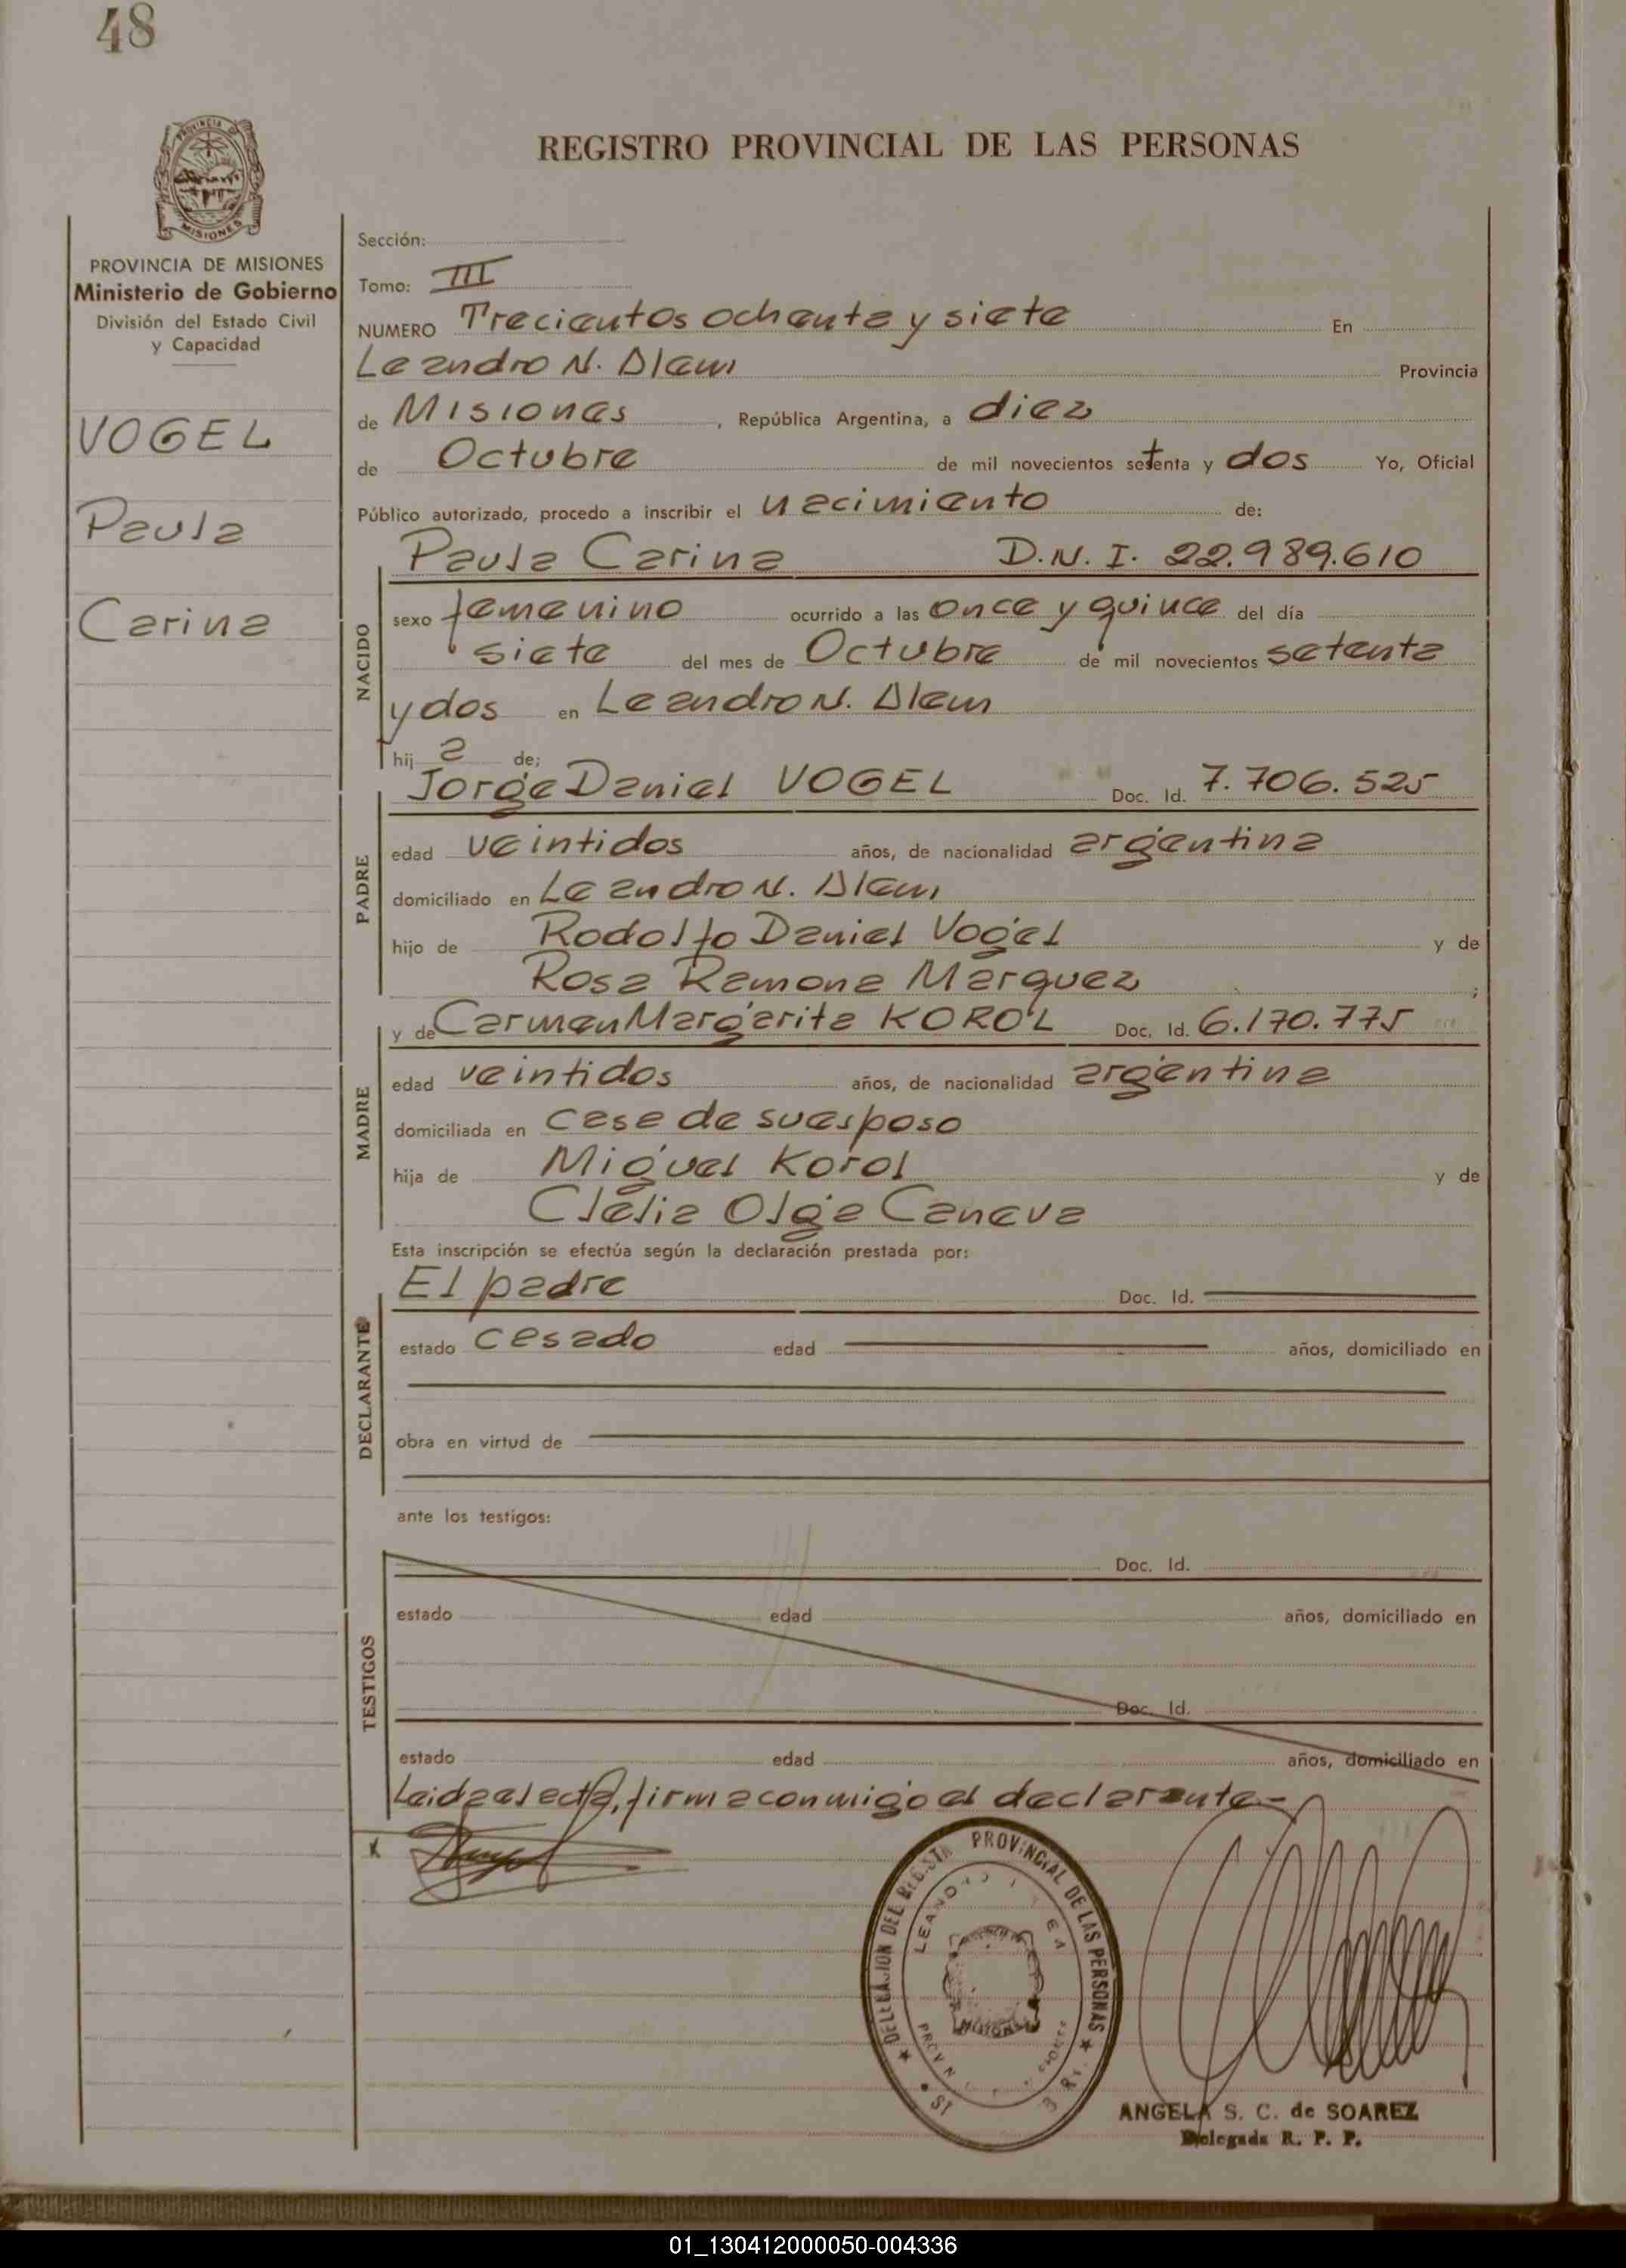 48
PROVINCIA DE
MISIONES
REGISTRO PROVINCIAL DE LAS PERSONAS
PROVINCIA DE MISIONES
Ministerio de Gobierno
División del Estado Civil
y Capacidad
VOGEL
Paula
Carina
Sección:
Tomo: III
NUMERO Trecientos ochenta y siete En
Leandro N. Alem Provincia
de Misiones, República Argentina, a diez
de Octubre de mil novecientos setenta y dos Yo, Oficial
Público autorizado, procedo a inscribir el nacimiento de:
Paula Carina D.N.I. 22.989.610
NACIDO
sexo femenino ocurrido a las once y quince del día
siete del mes de Octubre de mil novecientos setenta
y dos en Leandro N. Alem
hij a de;
Jorge Daniel VOGEL Doc. Id. 7.706.525
PADRE
edad veintidos años, de nacionalidad argentina
domiciliado en Leandro N. Alem
hijo de Rodolfo Daniel Vogel y de
Rosa Ramona Marquez ;
y de Carmen Margarita KOROL Doc. Id. 6.170.775
MADRE
edad veintidos años, de nacionalidad argentina
domiciliada en casa de su esposo
hija de Miguel Korol y de
Clelia Olga Caneva
Esta inscripción se efectúa según la declaración prestada por:
El padre Doc. Id.
DECLARANTE
estado casado edad años, domiciliado en
obra en virtud de
ante los testigos:
Doc. Id.
TESTIGOS
estado edad años, domiciliado en
Doc. Id.
estado edad años, domiciliado en
Leida el acta, firma conmigo el declarante-
x
PROVINCIAL DE LAS PERSONAS
MISIONES
ANGELA S. C. de SOAREZ
Delegada R. P. P.
01_130412000050-004336